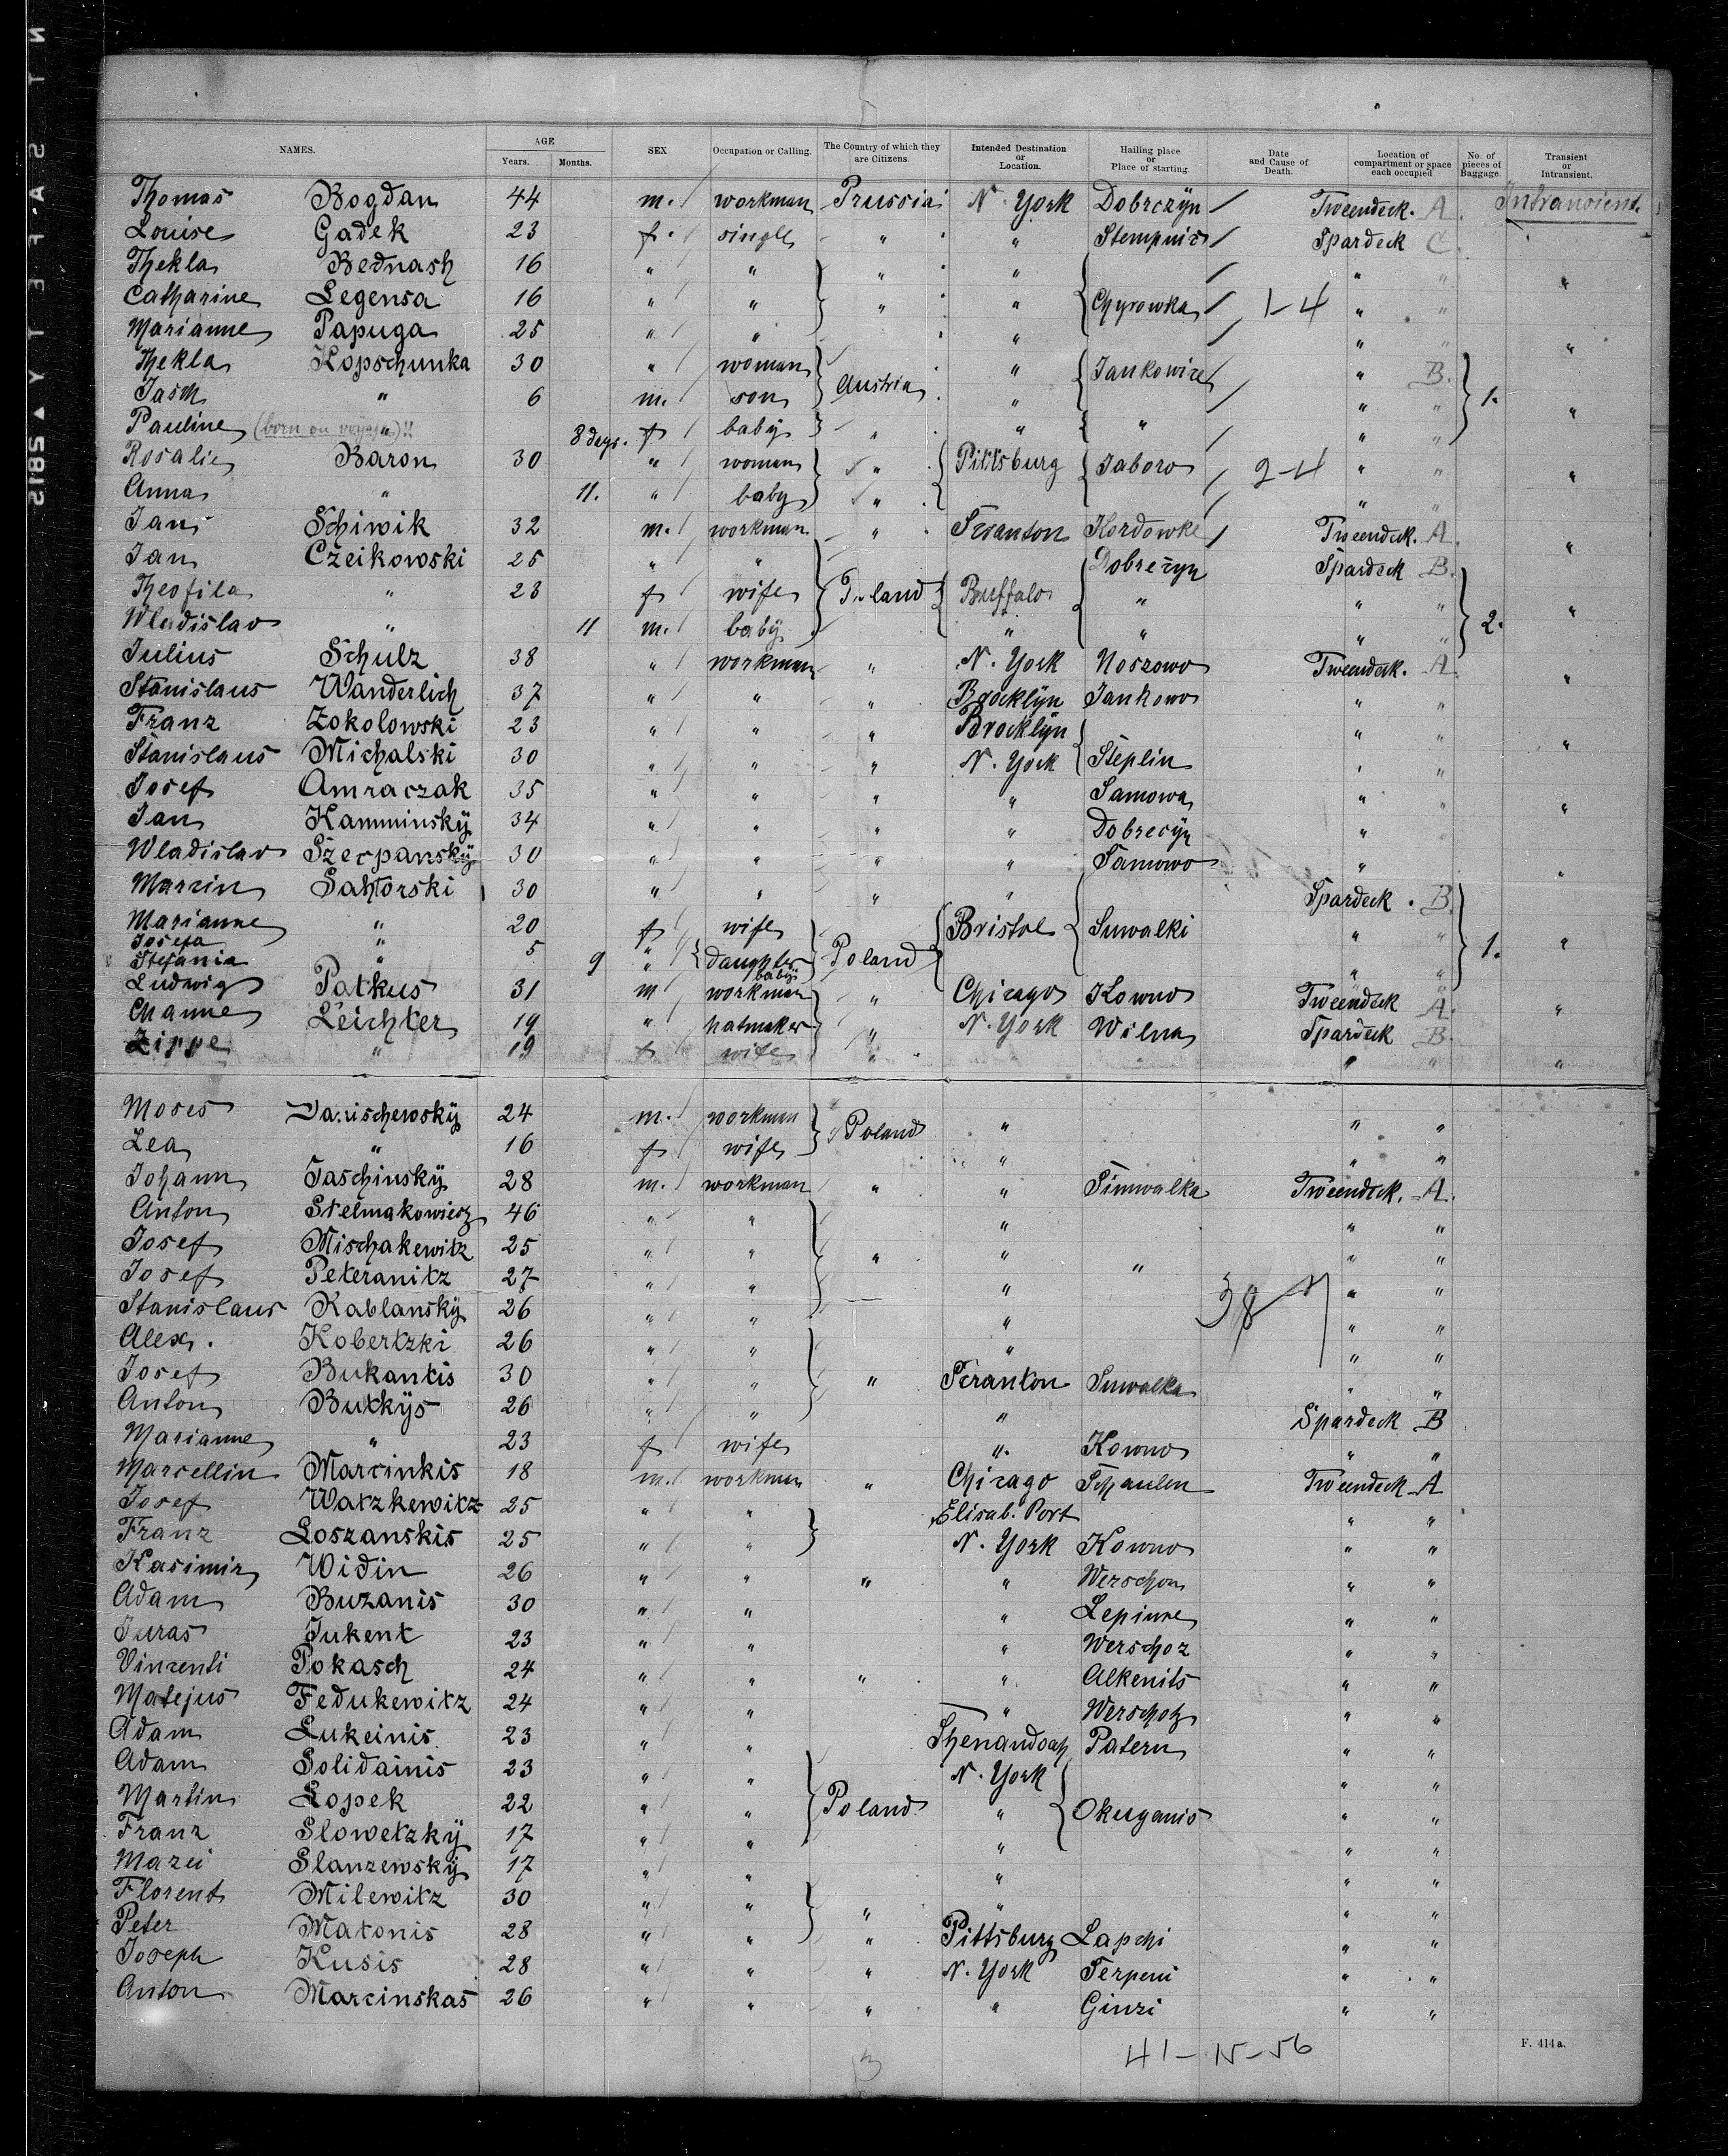 NAMES. AGE Years. Months. SEX Occupation or Calling. The Country of which they are Citizens. Intended Destination or Location. Hailing place or Place of starting. Date and Cause of Death. Location of compartment or space each occupied No. of pieces of Baggage. Transient or Intransient.
Thomas Bogdan 44 m. workman Prussia N. York Dobrczyn Tweendeck. A. Intransient.
Louise Gadek 23 f. single " " Stempnis Spardeck C.
Thekla Bednasch 16 " " " " " " "
Catharine Legensa 16 " " " " Chyrowka 1-4 " "
Marianne Papuga 25 " " " " " "
Thekla Kopschunka 30 " woman Austria " Jankowize " B. 1. "
Jasch " 6 m. son " " " "
Pauline (born on voyage)!! " 8 days. f baby " " " " "
Rosalie Baron 30 " woman " Pittsburg Jaboro 2-4 " " "
Anna " 11. " baby " " "
Jan Schiwik 32 m. workman " Scranton Kordowke Tweendeck. A. "
Jan Czeikowski 25 " " Poland Buffalo Dobreczyn Spardeck B. 2.
Theofila " 23 f wife " " " "
Wladislav " 11 m. baby " " " "
Julius Schulz 38 " workman " N. York Noszowo Tweendeck. A. "
Stanislaus Wanderlich 37 " " " Brocklyn Jankowo " "
Franz Zokolowski 23 " " " Brocklyn " " "
Stanislaus Michalski 30 " " " N. York Steplin " "
Josef Amraczak 35 " " " " Samowa " " "
Jan Kamminsky 34 " " " " Dobrecyn "
Wladislav Szecpansky 30 " " " " Samowo " "
Marzin Sahtorski 30 " " " " Spardeck. B. 1.
Marianne " 20 f wife Poland Bristol Suwalki " " "
Josefa " 5 " daughter
Stefania " 9 " baby " "
Ludwig Patkus 31 m workman " Chicago Kowno Tweendeck A. "
Channe Leichter 19 " hatmaker " N. York Wilna Spardeck B.
Zippe " 19 f wife " " " "
Moses 24 m. workman Poland " " "
Lea " 16 f wife " " "
Johann Jaschinsky 28 m. workman " " Simwalka Tweendeck. A.
Anton Stelmakowicz 46 " " " " "
Josef Mischakewitz 25 " " " " " " "
Josef Peteranitz 27 " " " " "
Stanislaus Kablansky 26 " " " " "
Alex. Kobertzki 26 " " " " "
Josef Bukantis 30 " " " Scranton Suwalka " "
Anton Butkys 26 " " " Spardeck B
Marianne " 23 f wife " Kowno " "
Marcellin Marcinkis 18 m. workman " Chicago Schaulen Tweendeck A
Josef Watzkewitz 25 " " Elisab. Port " "
Franz Loszanskis 25 " " N. York Kowno " "
Kasimir Widin 26 " " " " Werschon " "
Adam Buzanis 30 " " " Lepiune " "
Juras Jukent 23 " " " Werschoz " "
Vinzenti Pokasch 24 " " " " Alkenits " "
Matejus Fedukewitz 24 " " " Werschoz " "
Adam Lukeinis 23 " " Shenandoah Patern " "
Adam Solidainis 23 " " Poland N. York Okuyanis " "
Martin Lopek 22 " " " " "
Franz Slowetzky 17 " " " " "
Mazei Slanzewsky 17 " " " " "
Florent Milewitz 30 " " " " " "
Peter Matonis 28 " " " Pittsburg Lapchi " "
Joseph Kusis 28 " " " N. York Serpeni " "
Anton Marcinskas 26 " " " " Ginzi " "
41-15-56
F. 414a.
3